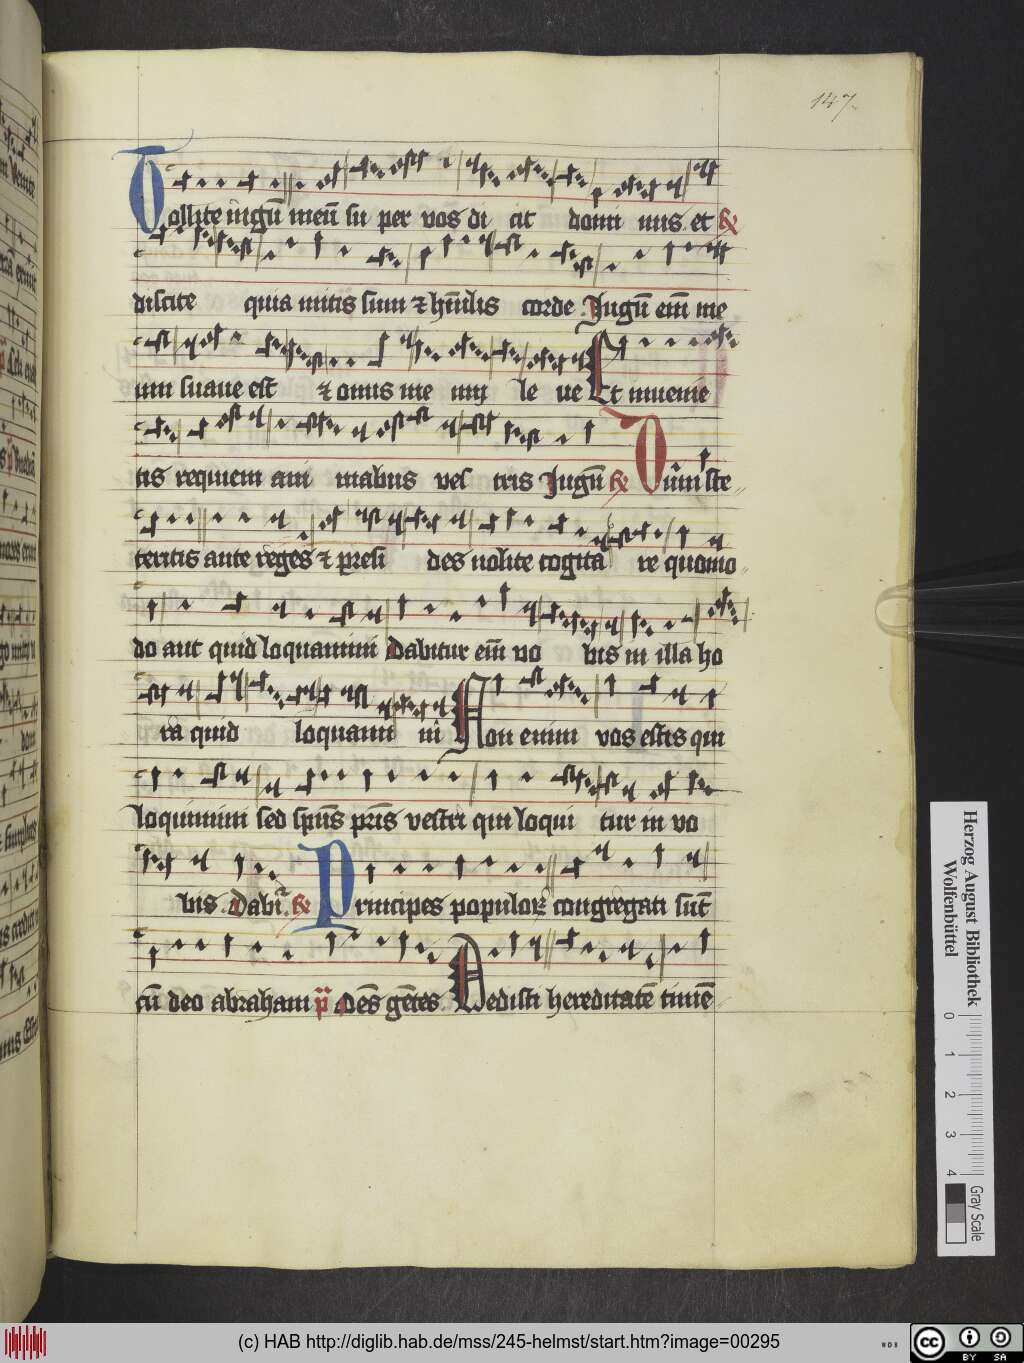 147
Tollite iugū meū su per vos di cit domi nus et &
discite quia mitis sum ⁊ hūilis corde . Iugū em̄ me
um suaue est ⁊ onus me um le ue Et inuenie
tis requiem ani mabus ves tris Iugū & Dum ste
teritis ante reges ⁊ presi des nolite cogita re quomo
do aut quid loquamini Dabitur em̄ vo bis in illa ho
ra quid loquami ni Non enim vos estis qui
loquimini sed spūs pr̄is vestri qui loqui tur in vo
bis . Dabit̄ . & Principes populoꝝ congregati sūt
cū deo abraham p̄ Oēs gētes . Dedisti hereditatē timē
Herzog August Bibliothek
Wolfenbüttel
0 1 2 3 4
Gray Scale
(c) HAB http://diglib.hab.de/mss/245-helmst/start.htm?image=00295
WDB
cc BY SA